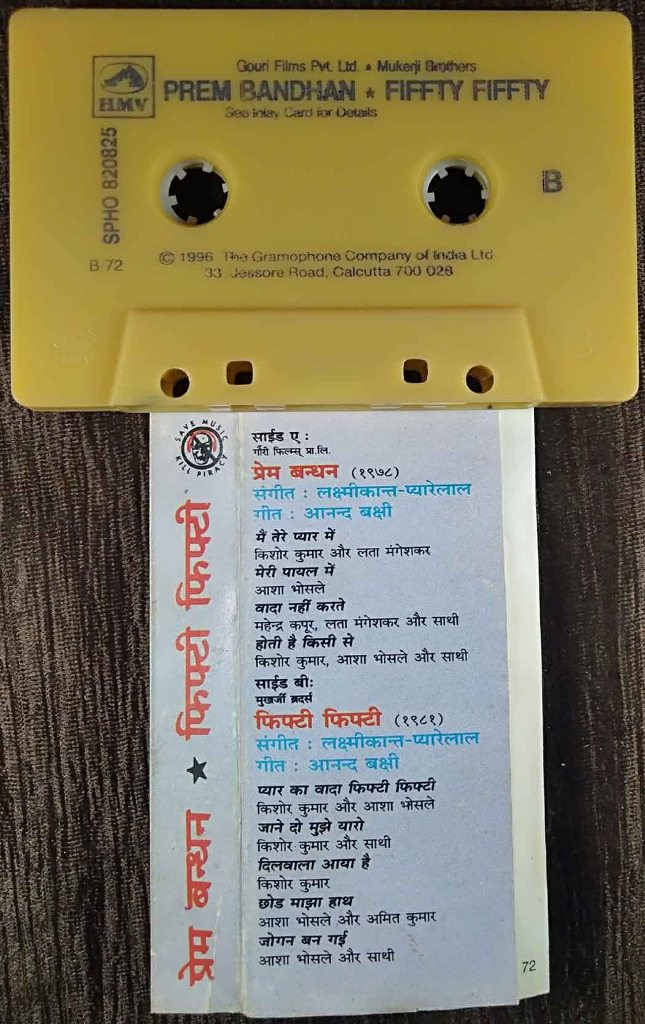 Gouri Films Pvt. Ltd. ★ Mukerji Brothers
HMV
PREM BANDHAN ★ FIFFTY FIFFTY
See Inlay Card for Details
SPHO B20825
B
B 72
© 1996 The Gramophone Company of India Ltd
33, Jessore Road, Calcutta 700 028
SAVE MUSIC
KILL PIRACY
प्रेम बन्धन ★ फिफ्टी फिफ्टी
साईड ए :
गौरी फिल्म्स् प्रा.लि.
प्रेम बन्धन (१९७८)
संगीत : लक्ष्मीकान्त-प्यारेलाल
गीत : आनन्द बक्षी
मैं तेरे प्यार में
किशोर कुमार और लता मंगेशकर
मेरी पायल में
आशा भोसले
वादा नहीं करते
महेन्द्र कपूर, लता मंगेशकर और साथी
होती है किसी से
किशोर कुमार, आशा भोसले और साथी
साईड बी:
मुखर्जी ब्रदर्स
फिफ्टी फिफ्टी (१९८१)
संगीत : लक्ष्मीकान्त-प्यारेलाल
गीत : आनन्द बक्षी
प्यार का वादा फिफ्टी फिफ्टी
किशोर कुमार और आशा भोसले
जाने दो मुझे यारो
किशोर कुमार और साथी
दिलवाला आया है
किशोर कुमार
छोड माझा हाथ
आशा भोसले और अमित कुमार
जोगन बन गई
आशा भोसले और साथी
72